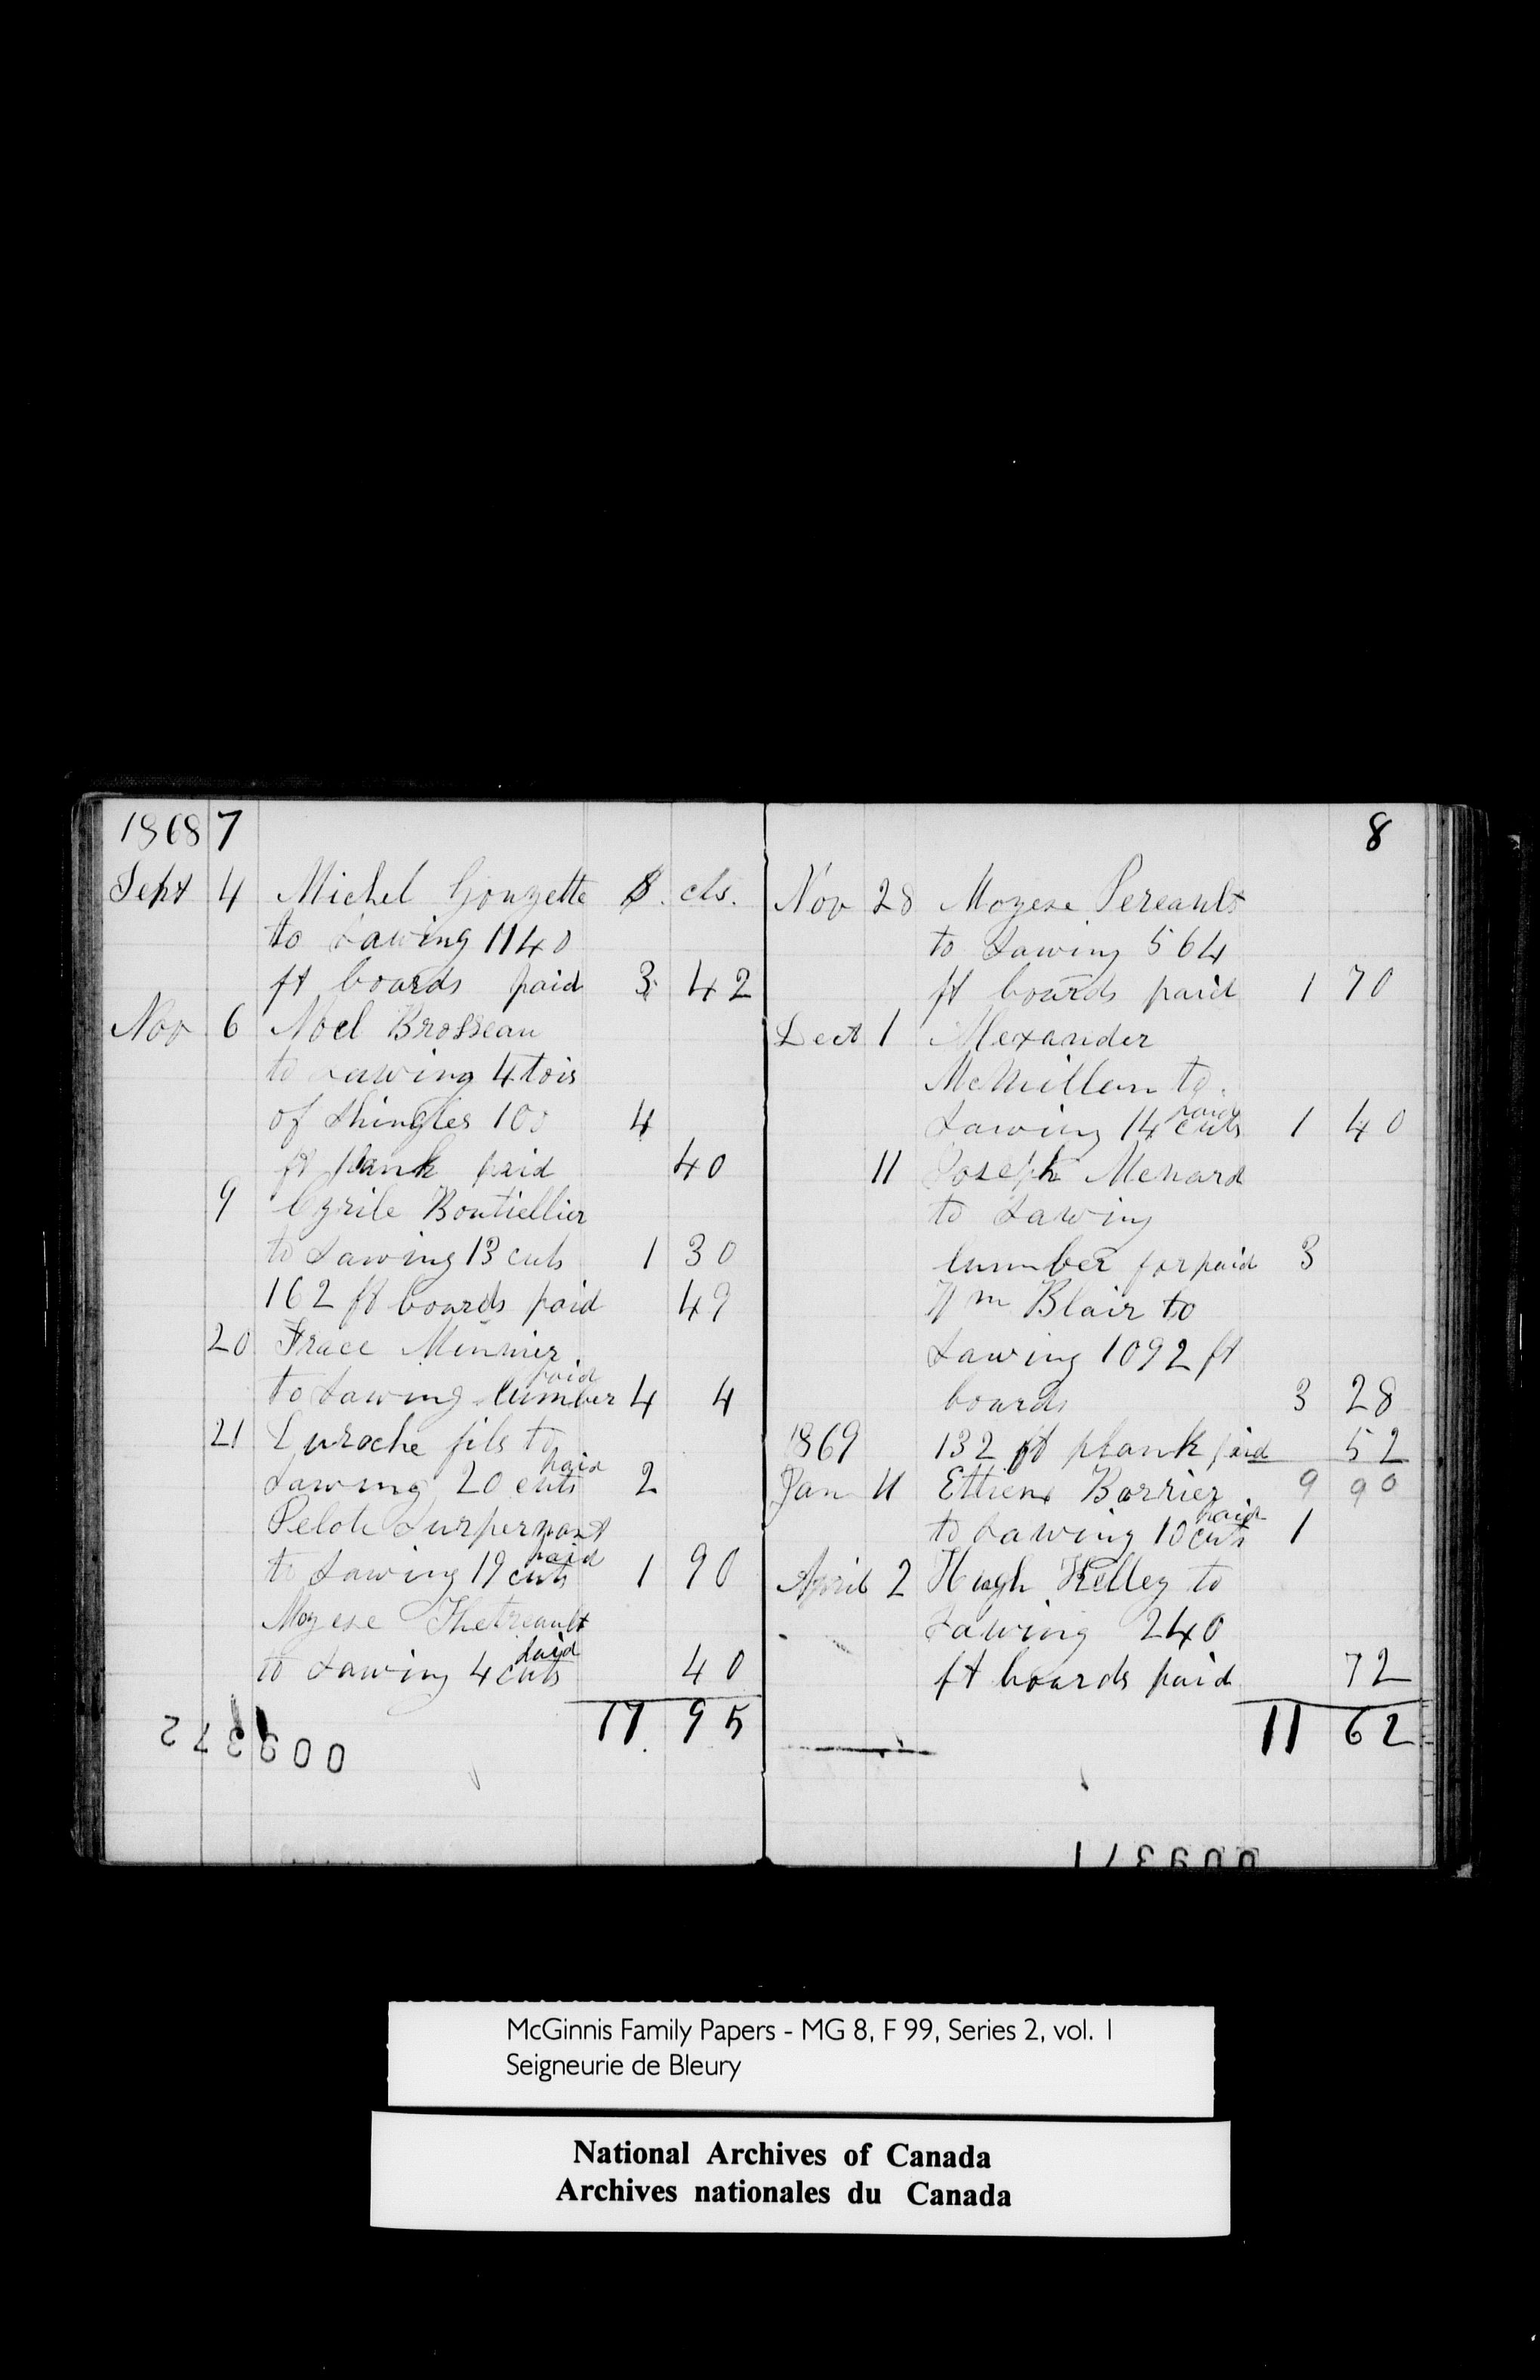 1868 7
Sept 4 Michel Gouzette $. cts.
to Sawing 1140
ft boards paid 3 42
Nov 6 Noel Brosseau
to Sawing 4 tois
of Shingles 100 4
ft plank paid 40
9 Cyrile Boutiellier
to Sawing 13 cuts 1 30
162 ft boards paid 49
20 Frace
paid
to Sawing lumber 4 4
21 Luroche fils to
paid
Sawing 20 cuts 2
Pelote
paid
to Sawing 19 cuts 1 90
Mozese Thetreault
paid
to Sawing 4 cuts 40
17 95
009372
8
Nov 28 Mozese Pereault
to Sawing 564
ft boards paid 1 70
Dect 1 Alexander
McMillan to
paid
Sawing 14 cuts 1 40
11 Joseph Menard
to Sawing
lumber for paid 3
Wm Blair to
Sawing 1092 ft
boards 3 28
1869 132 ft plank paid 52
Jan 11 Ettiene Barrier 9 90
paid
to Sawing 10 cuts 1
April 2 Hugh Kelley to
Sawing 240
ft boards paid 72
11 62
009371
McGinnis Family Papers - MG 8, F 99, Series 2, vol. 1
Seigneurie de Bleury
National Archives of Canada
Archives nationales du Canada